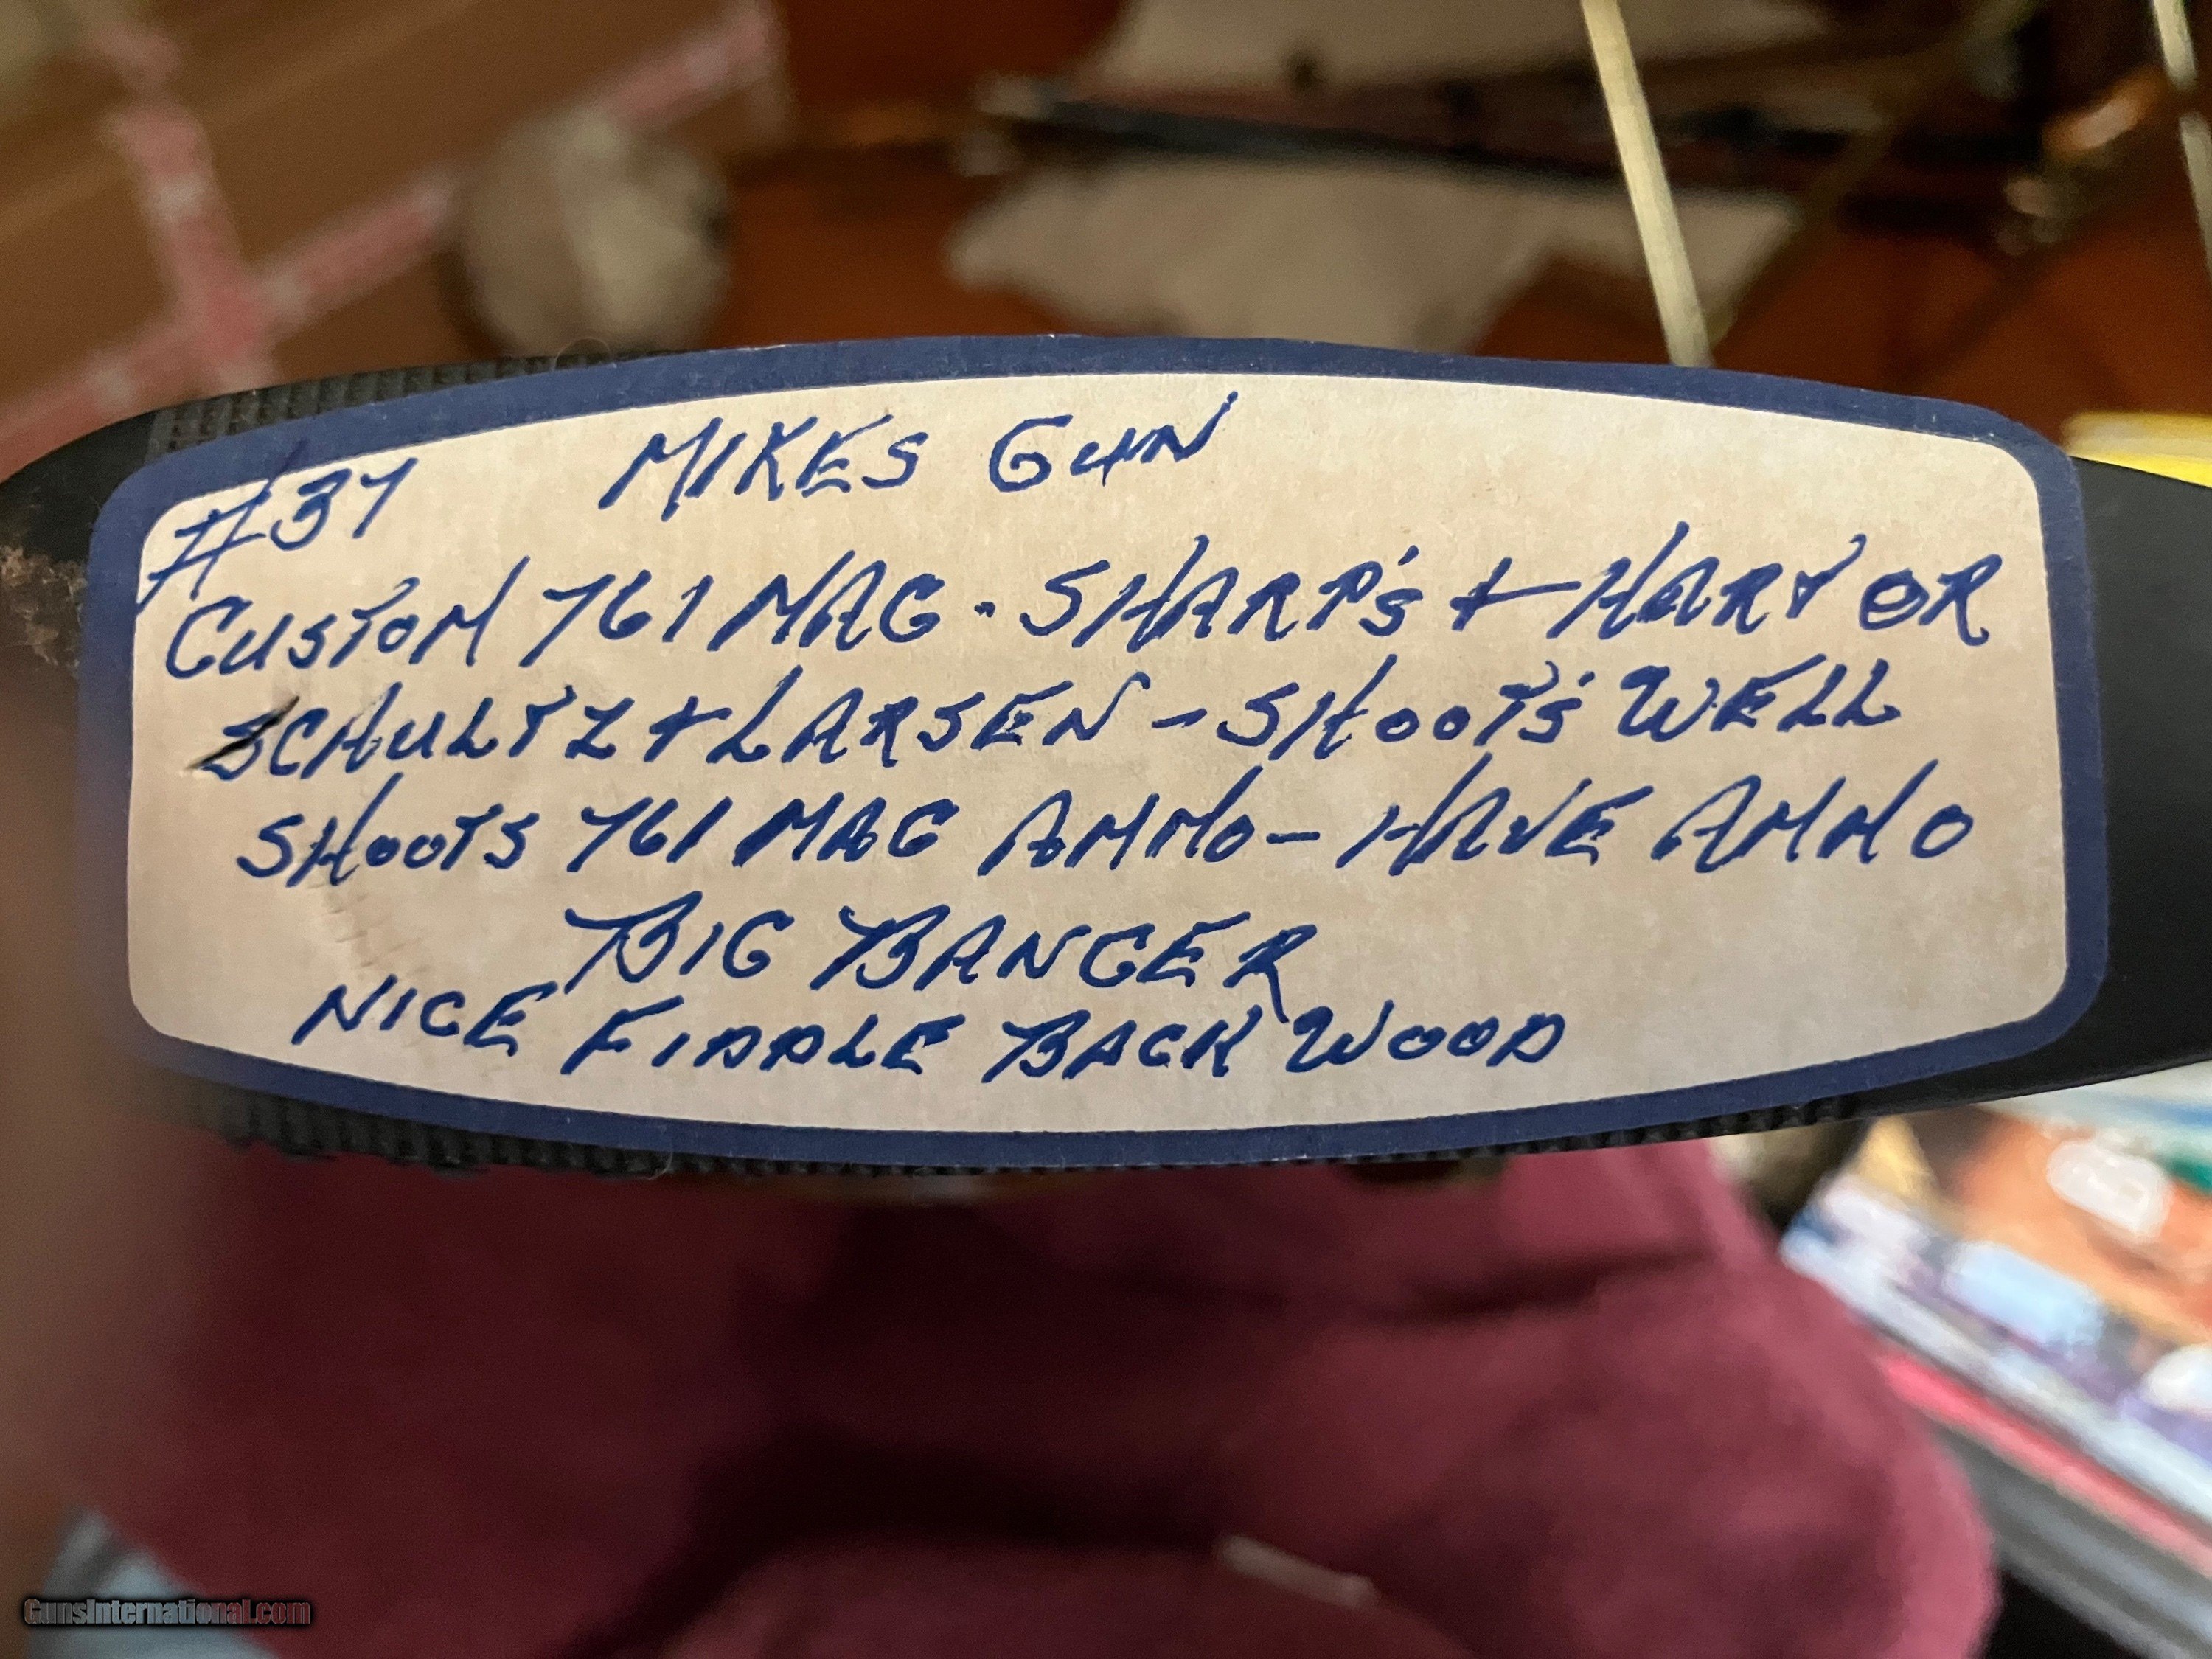 MIKES GUN
#37
CUSTOM 761 MAG - SHARP'S + HART OR
SCHULTZ + LARSEN - SHOOT'S WELL
SHOOTS 761 MAG AMMO - HAVE AMMO
BIG BANGER
NICE FIDDLE BACK WOOD
GunsInternational.com